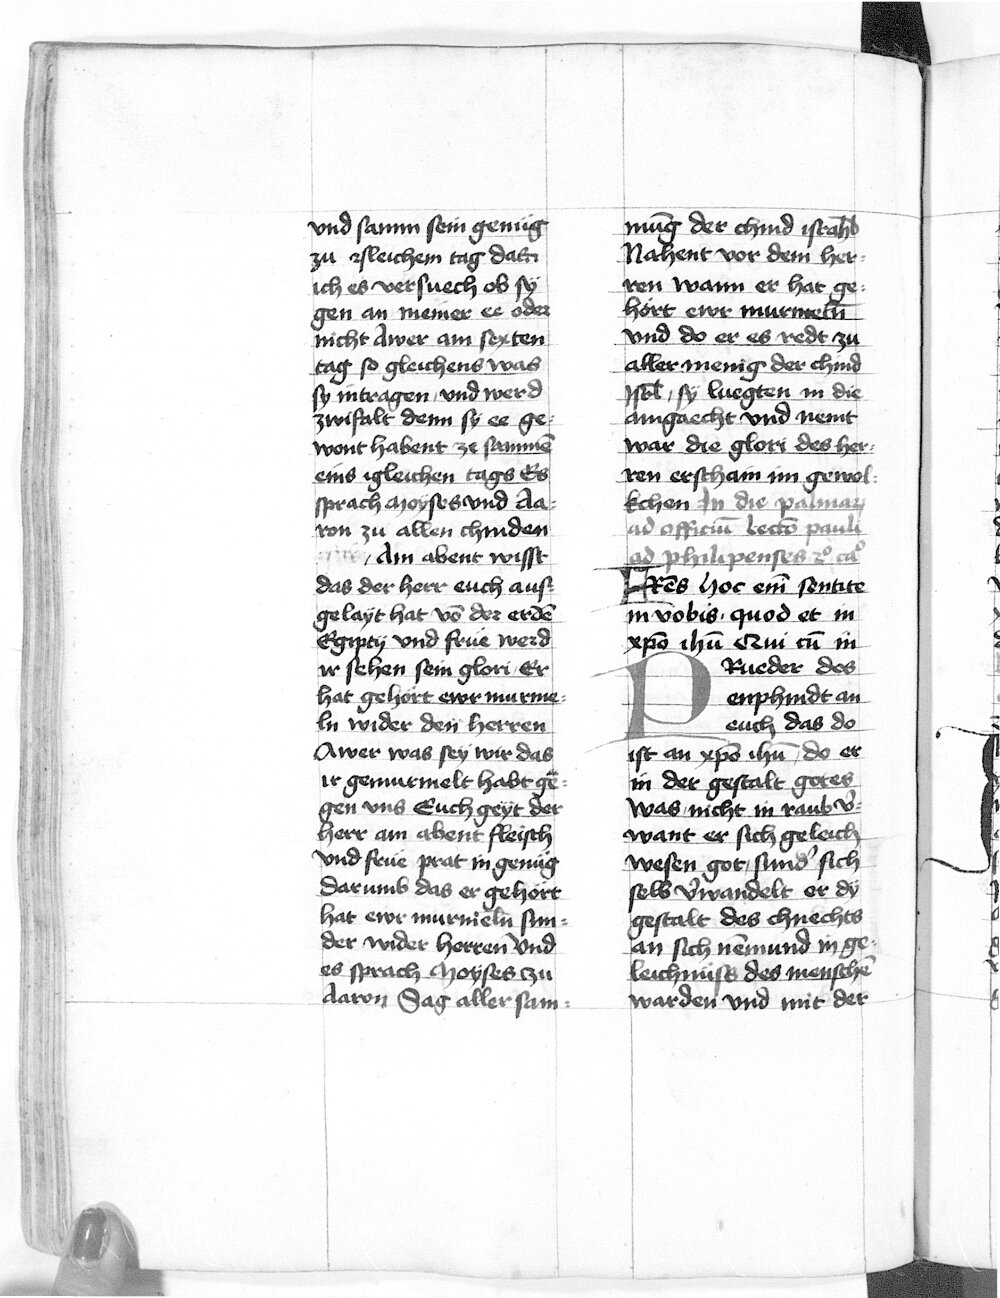 vnd samm sein genüg
zu isleichem tag dascz
ich es versuech ob sy
gen an meiner ee oder
nicht Awer am sexten
tag so gleichens was
sy intragen vnd werd
zwifalt denn sy ee ge-
wont habent ze sammē
eins igleichen tags Es
sprach Moyses vnd Aa-
ron zu allen chinden
Am abent wisst
das der herr euch aus-
gelayt hat vō der erdē
Egipty vnd frue werd
ir sehen sein glori Er
hat gehört ewr murme-
ln wider den herren
Awer was sey wir das
ir gemurmelt habt ge-
gen vns Euch geyt der
herr am abent fleisch
vnd frue prat in genüg
darumb das er gehört
hat ewr murmeln sun-
der wider herren vnd
es sprach Moyses zu
Aaron Sag aller sam-
mūg der chind israhel
Nahent vor dem her-
ren wann er hat ge-
hört ewr murmeln
vnd do er es redt zu
aller menig der chind
Isrl sy luegten in die
aingaecht vnd nemt
war die glori des her-
ren erschain im gewol-
kchen In die palmarū
ad officiū lectō pauli
ad philipenses 2º caº
FRēs hoc enī sentite
in vobis quod et in
xpō ihū Qui cū in
PRueder des
enphindt an
euch das do
ist an xpō ihū do er
in der gestalt gotes
was nicht in raub v̄-
want er sich geleich
wesen got sund' sich
selb v̄wandelt er dy
gestalt des chnechts
an sich nēmund in ge-
leichnüss des menschē
warden vnd mit der